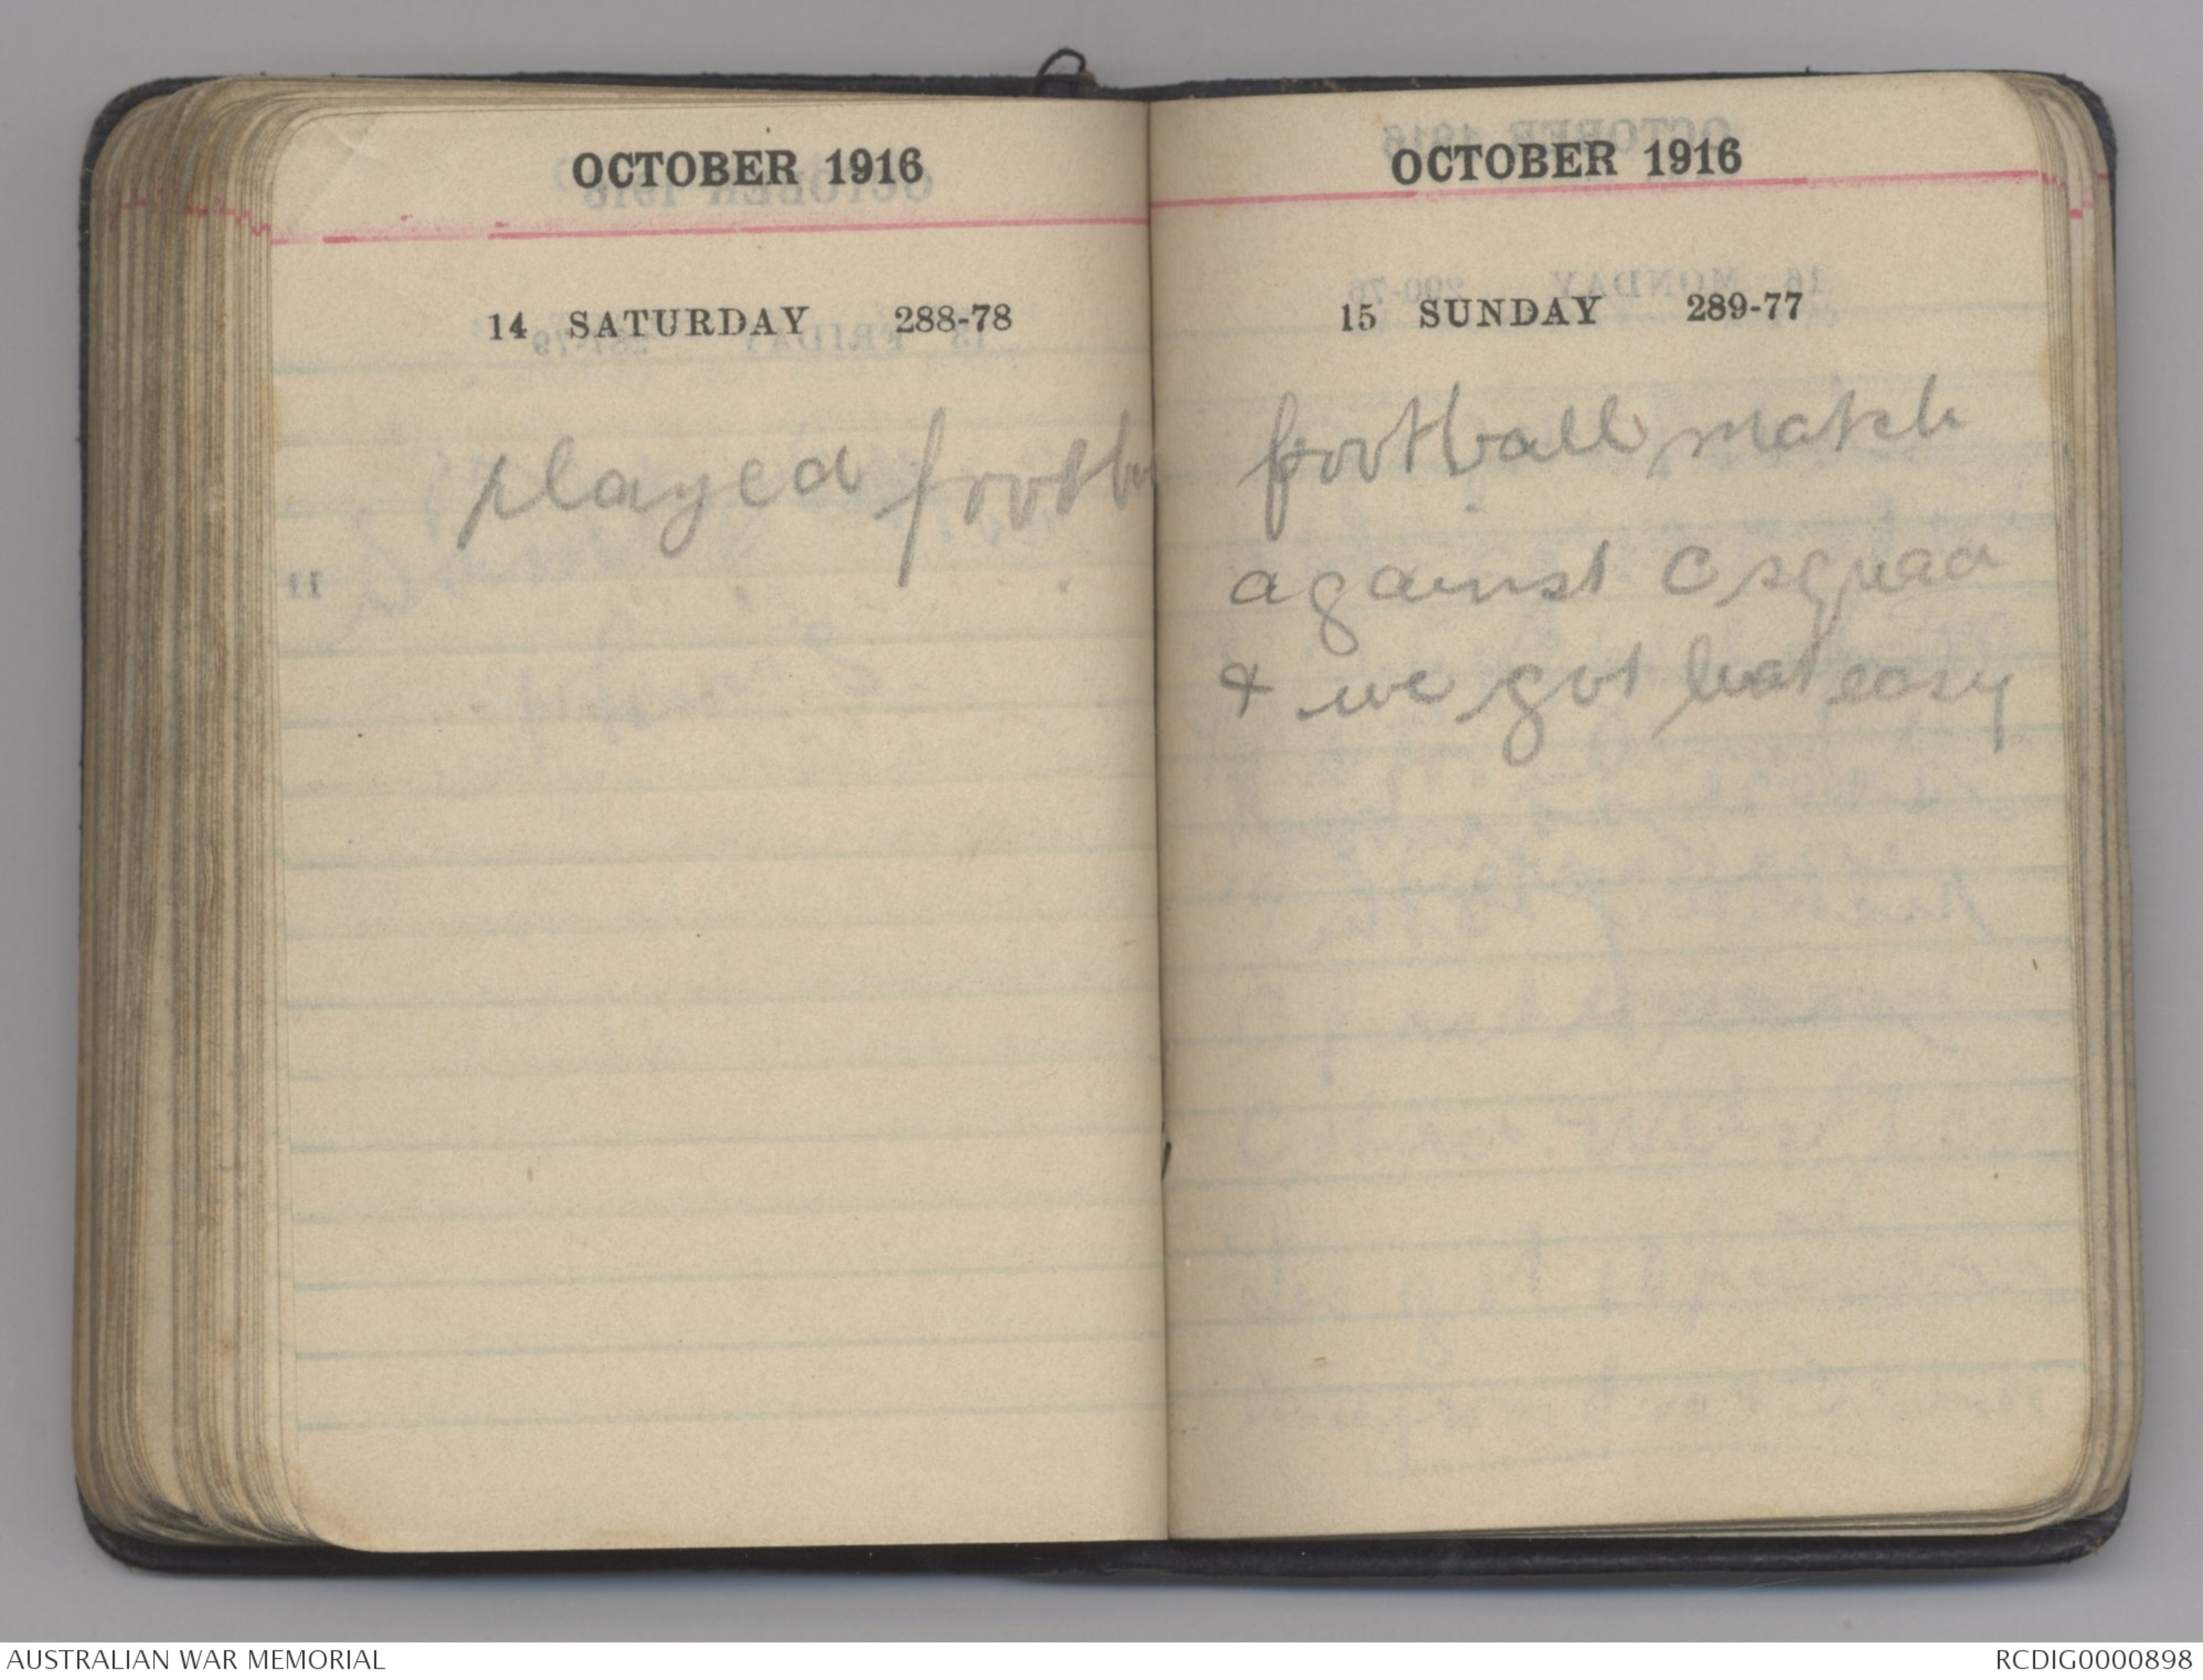 OCTOBER 1916
14 SATURDAY 288-78
played footb
OCTOBER 1916
15 SUNDAY 289-77
football match
against C squad
& we got beat easy
AUSTRALIAN WAR MEMORIAL
RCDIG0000898